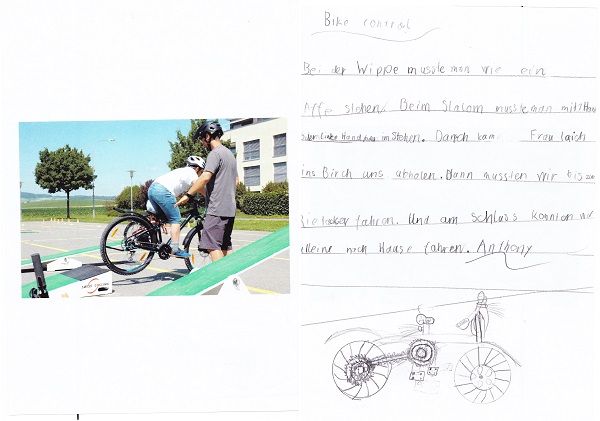 Bike control
Bei der Wippe musste man wie ein
Affe stehen. Beim Slalom musste man mit
Hand im Stehen. Danach kam Frau Laich
ins Birch uns abholen. Dann mussten wir bis
fahren. Und am Schluss konnten wir
alleine nach Hause fahren. Anthony